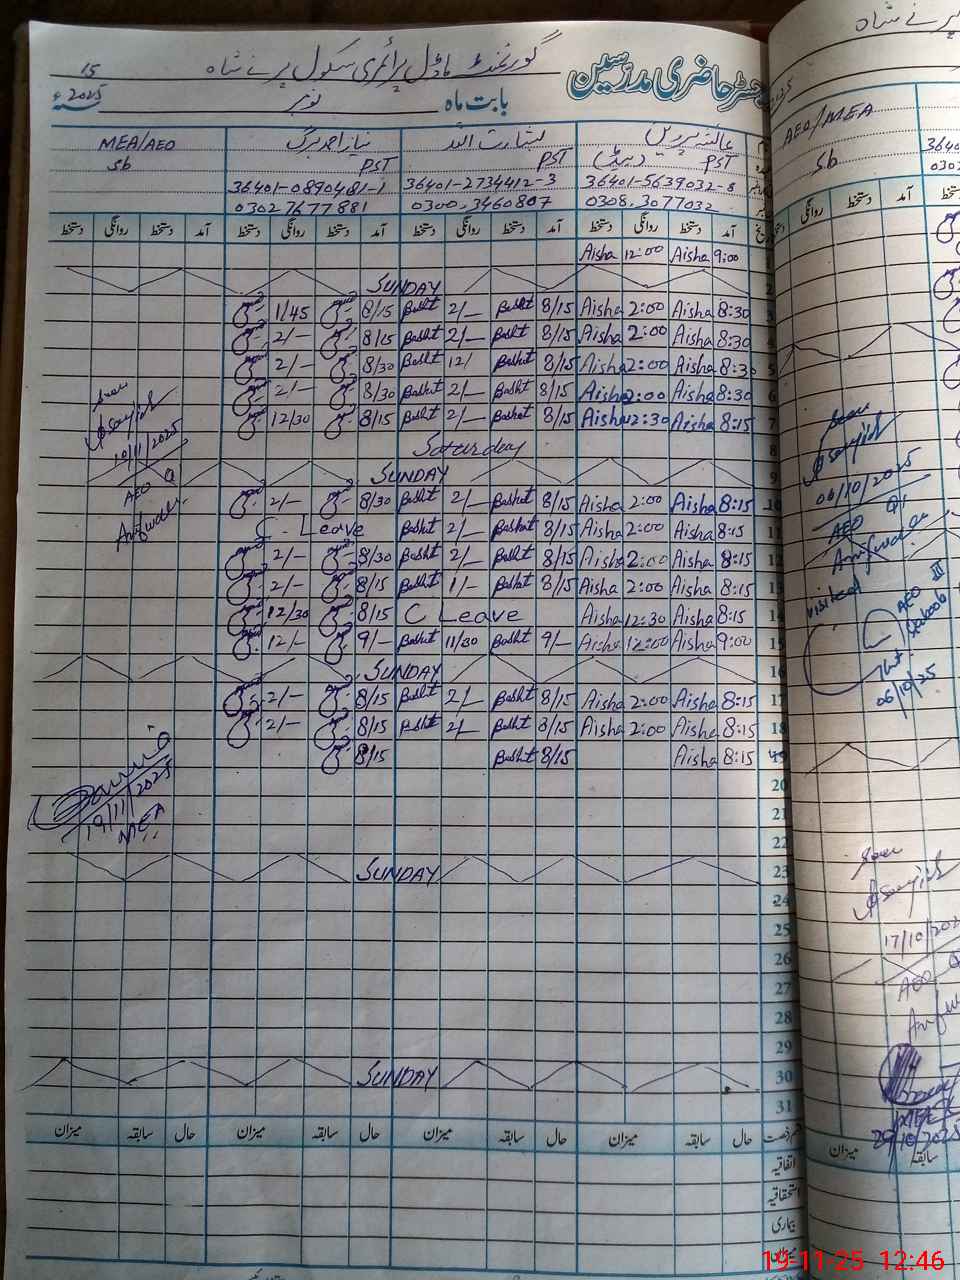 گورنمنٹ ماڈل پرائمری سکول پرنے شاہ
15
رجسٹر حاضری مدرسین
بابت ماہ نومبر 2025ء
عائشہ پروین بشارت اللہ نیاز احمد MEA/AEO
PST (ہیڈ) PST PST Sb
36401-5639032-8 36401-2734412-3 36401-0890481-1
0308.3077032 0300.3460807 03027677881
تاریخ آمد دستخط روانگی دستخط آمد دستخط روانگی دستخط آمد دستخط روانگی دستخط آمد دستخط روانگی دستخط
1 9:00 Aisha 12:00 Aisha
2 SUNDAY
3 8:30 Aisha 2:00 Aisha 8/15 Basht 2/— Basht 8/15 1/45
4 8:30 Aisha 2:00 Aisha 8/15 Basht 2/— Basht 8/15 2/—
5 8:30 Aisha 2:00 Aisha 8/15 Basht 12/ Basht 8/30 2/—
6 8:30 Aisha 2:00 Aisha 8/15 Basht 2/— Basht 8/30 2/—
7 8:15 Aisha 12:30 Aisha 8/15 Basht 2/— Basht 8/15 12/30
8 Saturday
9 SUNDAY
10 8:15 Aisha 2:00 Aisha 8/15 Basht 2/— Basht 8/30 2/—
11 8:15 Aisha 2:00 Aisha 8/15 Basht 2/— Basht C. Leave
12 8:15 Aisha 2:00 Aisha 8/15 Basht 2/— Basht 8/30 2/—
13 8:15 Aisha 2:00 Aisha 8/15 Basht 1/— Basht 8/15 2/—
14 8:15 Aisha 12:30 Aisha C Leave 8/15 12/30
15 9:00 Aisha 12:00 Aisha 9/— Basht 11/30 Basht 9/— 12/—
16 SUNDAY
17 8:15 Aisha 2:00 Aisha 8/15 Basht 2/— Basht 8/15 2/—
18 8:15 Aisha 2:00 Aisha 8/15 Basht 2/— Basht 8/15 2/—
19 8:15 Aisha 8/15 Basht 8/15
20
21
22
23 SUNDAY
24
25
26
27
28
29
30 SUNDAY
31
10/11/2025
AEO
19/11/2025
MEA
حال سابقہ میزان حال سابقہ میزان حال سابقہ میزان حال سابقہ میزان
اتفاقیہ
استحقاقیہ
بیماری
AEO/MEA
Sb
آمد دستخط روانگی دستخط
06/10/2025
AEO
visited
AEO III
06/10/25
17/10/202
AEO
MEA
29/10/2025
میزان سابقہ
19-11-25 12:46